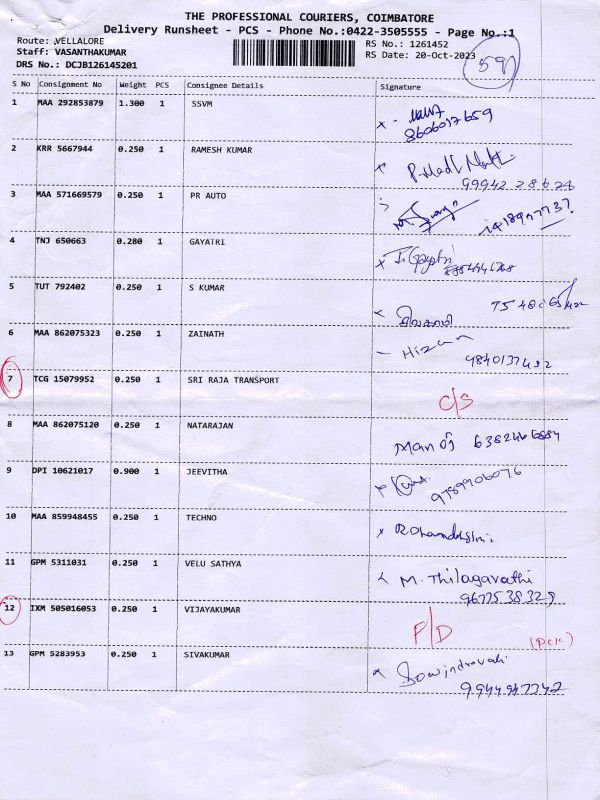 THE PROFESSIONAL COURIERS, COIMBATORE
Delivery Runsheet - PCS - Phone No.:0422-3505555 - Page No.:1
Route: VELLALORE
Staff: VASANTHAKUMAR
DRS No.: DCJB126145201
RS No.: 1261452
RS Date: 20-Oct-2023
59
S No Consignment No Weight PCS Consignee Details Signature
1 MAA 292853879 1.300 1 SSVM
8606017659
2 KRR 5667944 0.250 1 RAMESH KUMAR
3 MAA 571669579 0.250 1 PR AUTO
4 TNJ 650663 0.280 1 GAYATRI J. Gayatri
5 TUT 792402 0.250 1 S KUMAR
6 MAA 862075323 0.250 1 ZAINATH
9840137432
7 TCG 15079952 0.250 1 SRI RAJA TRANSPORT C/S
8 MAA 862075120 0.250 1 NATARAJAN Manoj
9 DPI 10621017 0.900 1 JEEVITHA
9789906076
10 MAA 859948455 0.250 1 TECHNO
11 GPM 5311031 0.250 1 VELU SATHYA M. Thilagavathi
9677538329
12 IXM 505016053 0.250 1 VIJAYAKUMAR P/D
13 GPM 5283953 0.250 1 SIVAKUMAR